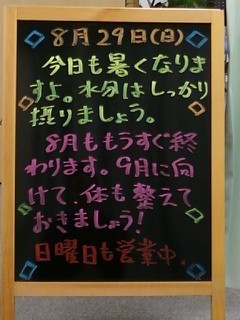 8月29日(日)
今日も暑くなりま
すよ。水分はしっかり
摂りましょう。
8月ももうすぐ終
わります。9月に向
けて、体も整えて
おきましょう!
日曜日も営業中。